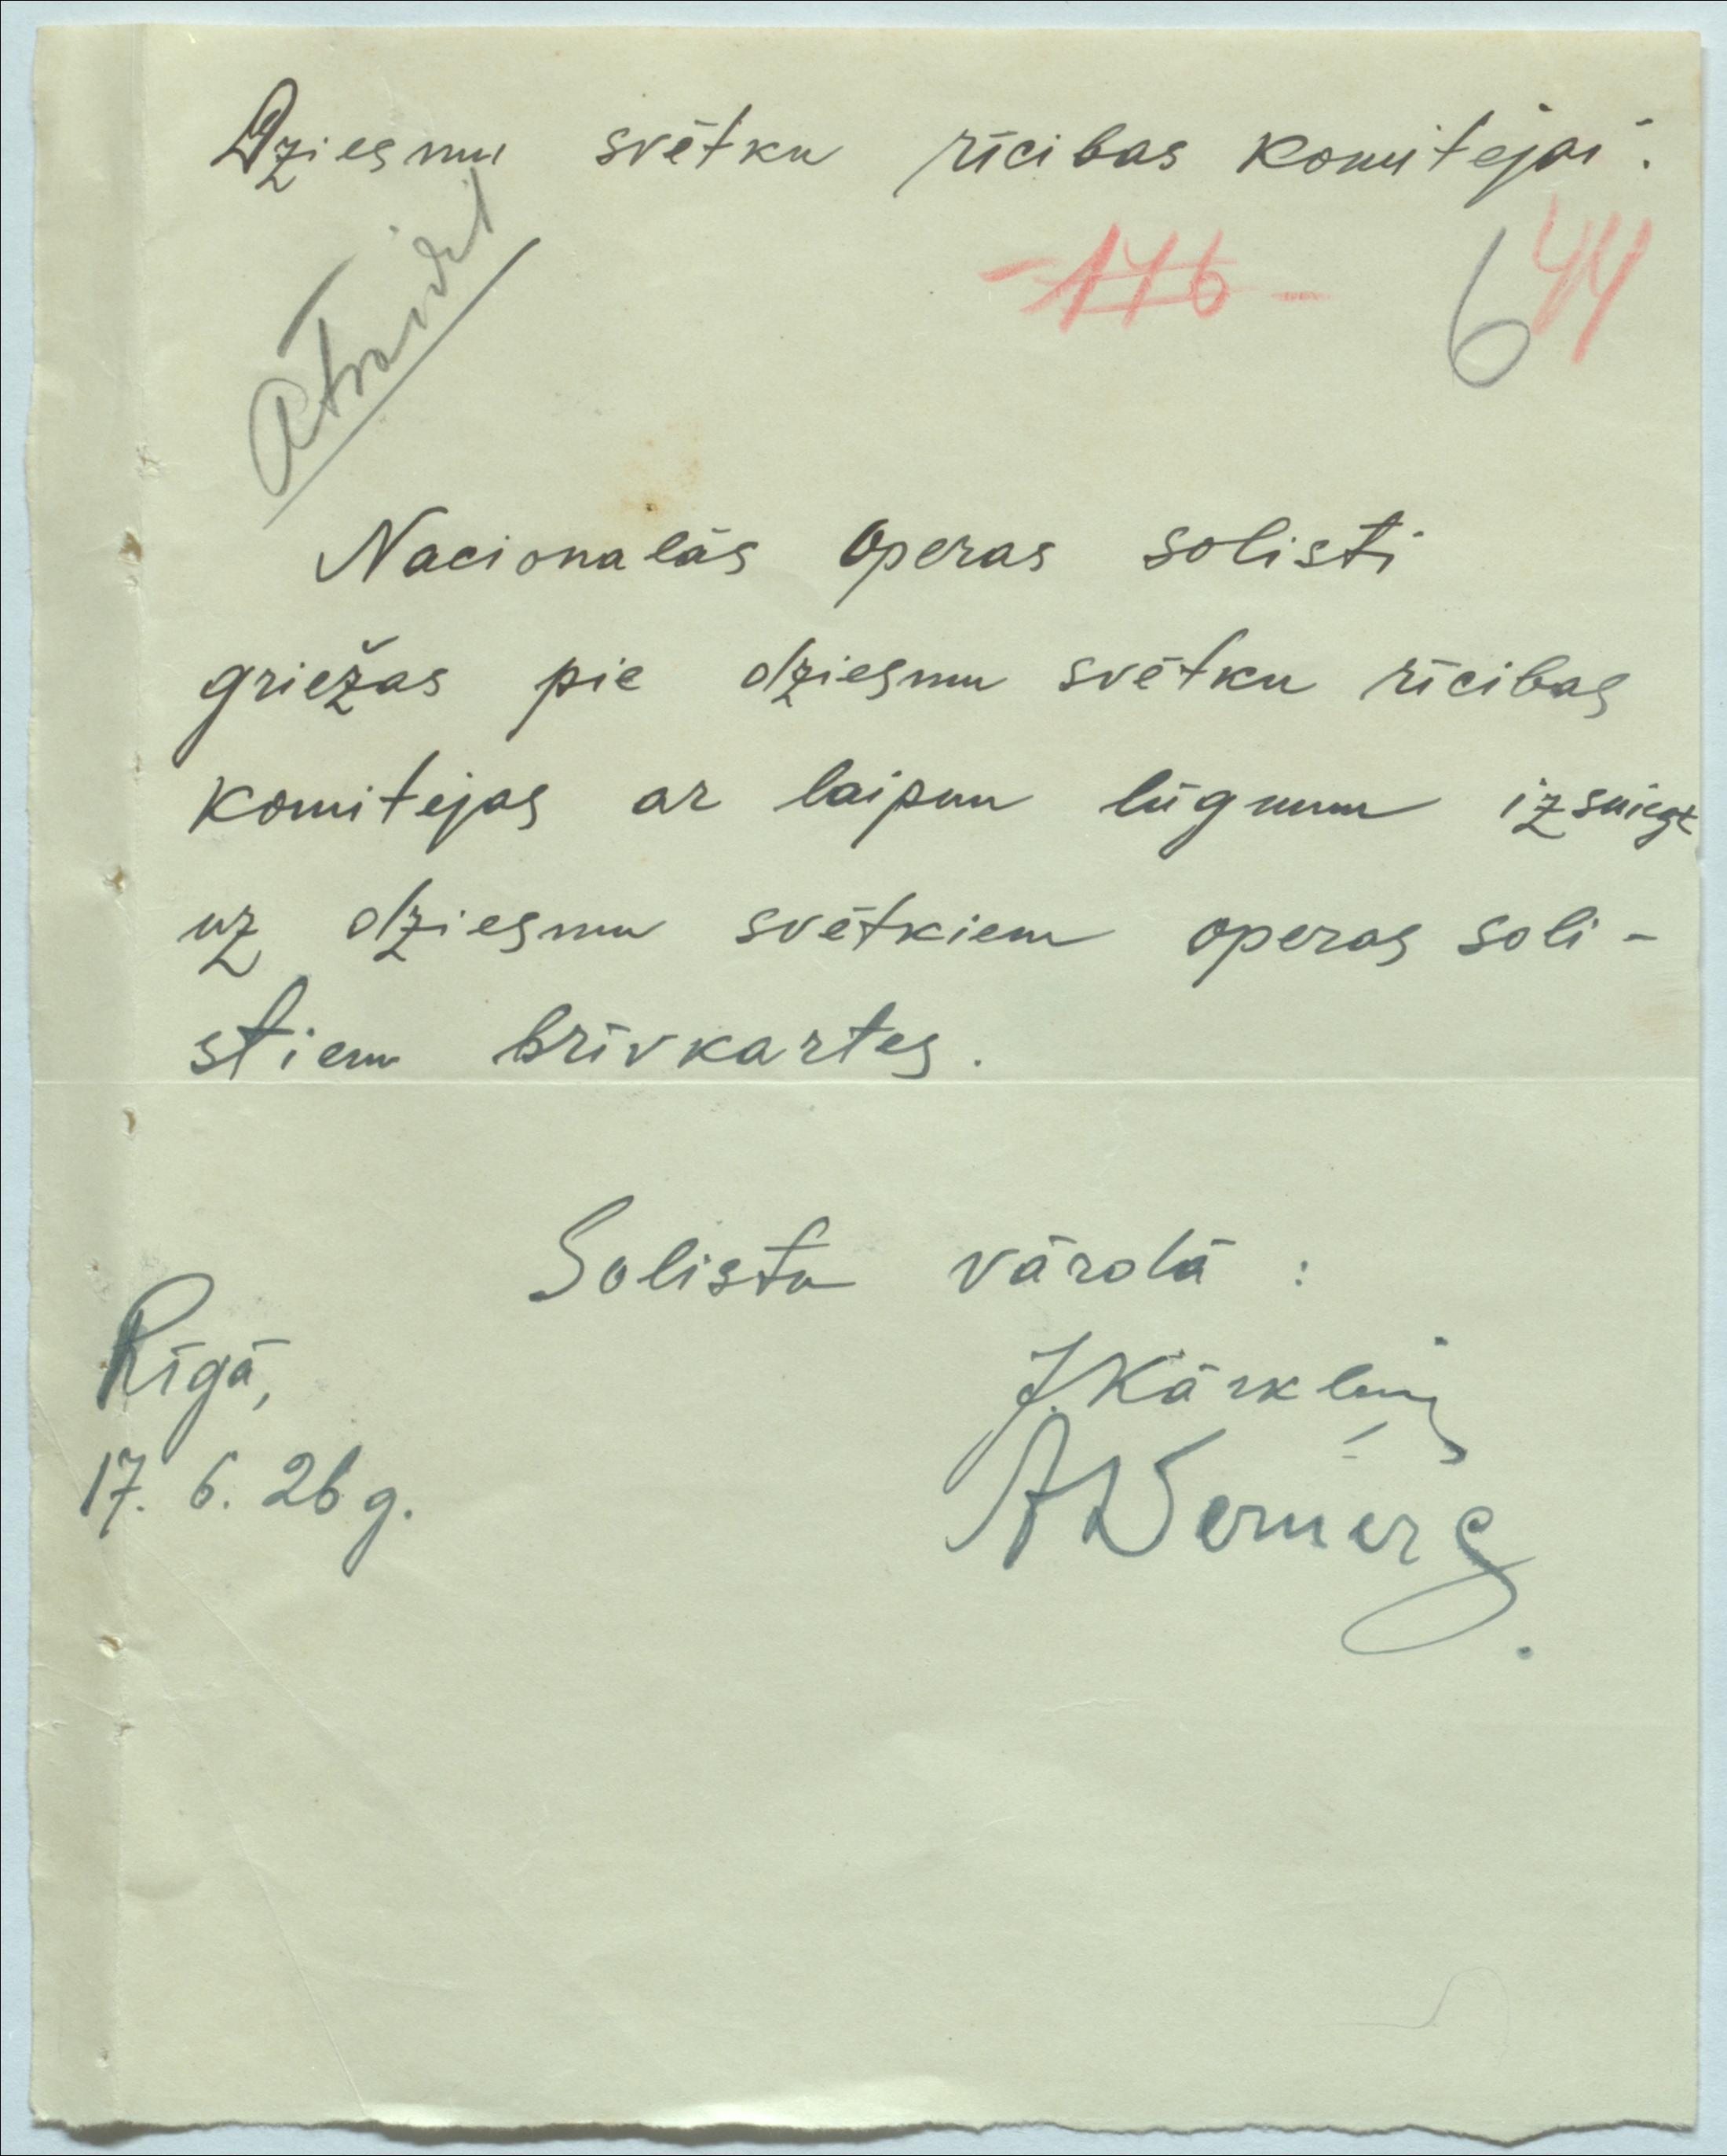 Dziesmu svētku rīcibas komitejai.
Atraidīt
-176-
6 44
Nacionalās Operas solisti
griežas pie dziesmu svētku rīcibas
komitejas ar laipnu lūgumu izsniegt
uz dziesmu svētkiem operas soli-
stiem brīvkartes.
Solistu vārdā:
Rīgā,
J. Kārkliņ
17. 6. 26 g.
A Verners.